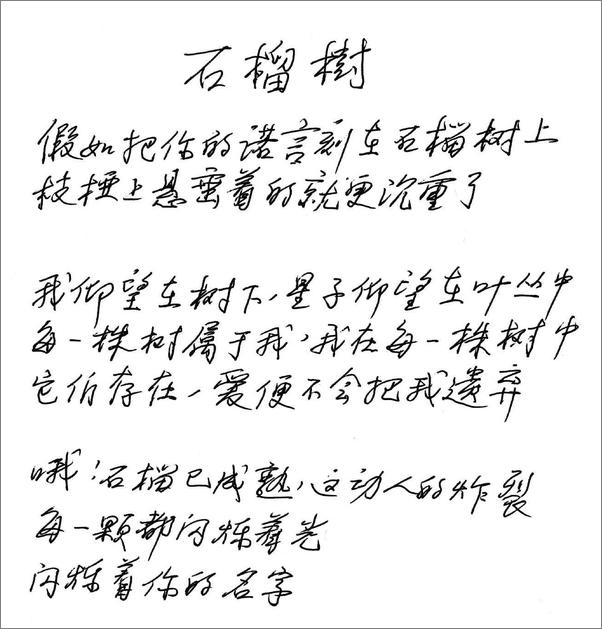 石榴樹
假如把你的诺言刻在石榴树上
枝桠上悬垂着的就更沉重了
我仰望在树下，星子仰望在叶丛中
每一株树属于我，我在每一株树中
它们存在，爱便不会把我遗弃
哦！石榴已成熟，这动人的炸裂
每一颗都闪烁着光
闪烁着你的名字